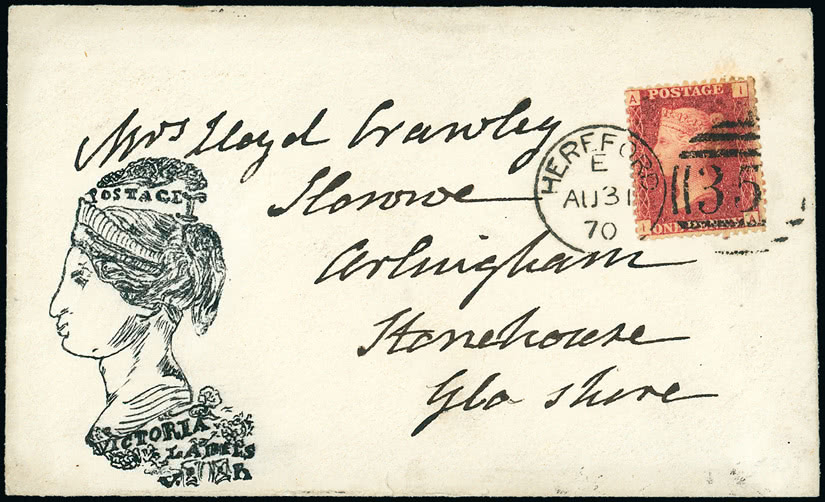 Mrs Lloyd Crawley
Arlingham
Stonehouse
Glo shire
POSTAGE
VICTORIA
LADIES
A I
POSTAGE
I A
ONE
HEREFORD
E
AU 31
70
35